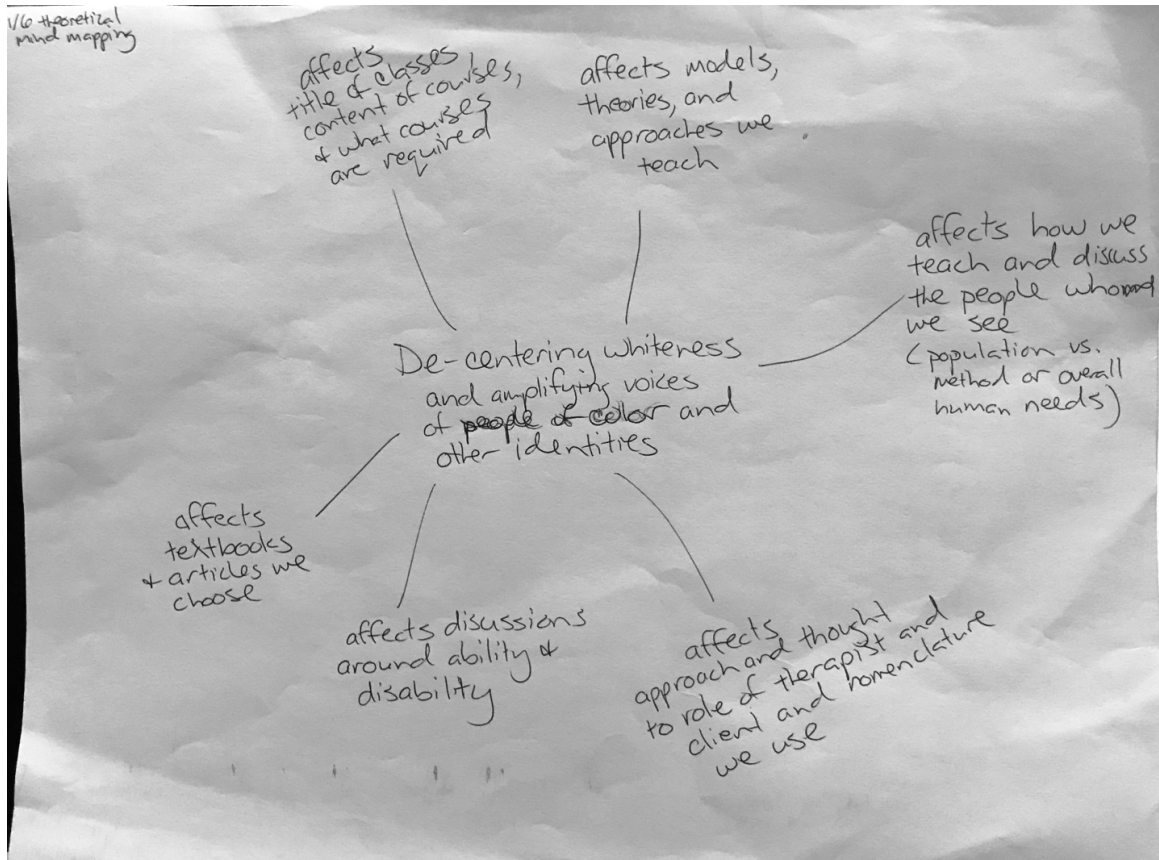 1/6 theoretical
mind mapping
affects
title of classes,
content of courses,
& what courses
are required
affects models,
theories, and
approaches we
teach
affects how we
teach and discuss
the people whom
we see
(population vs.
method or overall
human needs)
De-centering whiteness
and amplifying voices
of people of color and
other identities
affects
textbooks
& articles we
choose
affects discussions
around ability &
disability
affects
approach and thought
to role of therapist and
client and nomenclature
we use